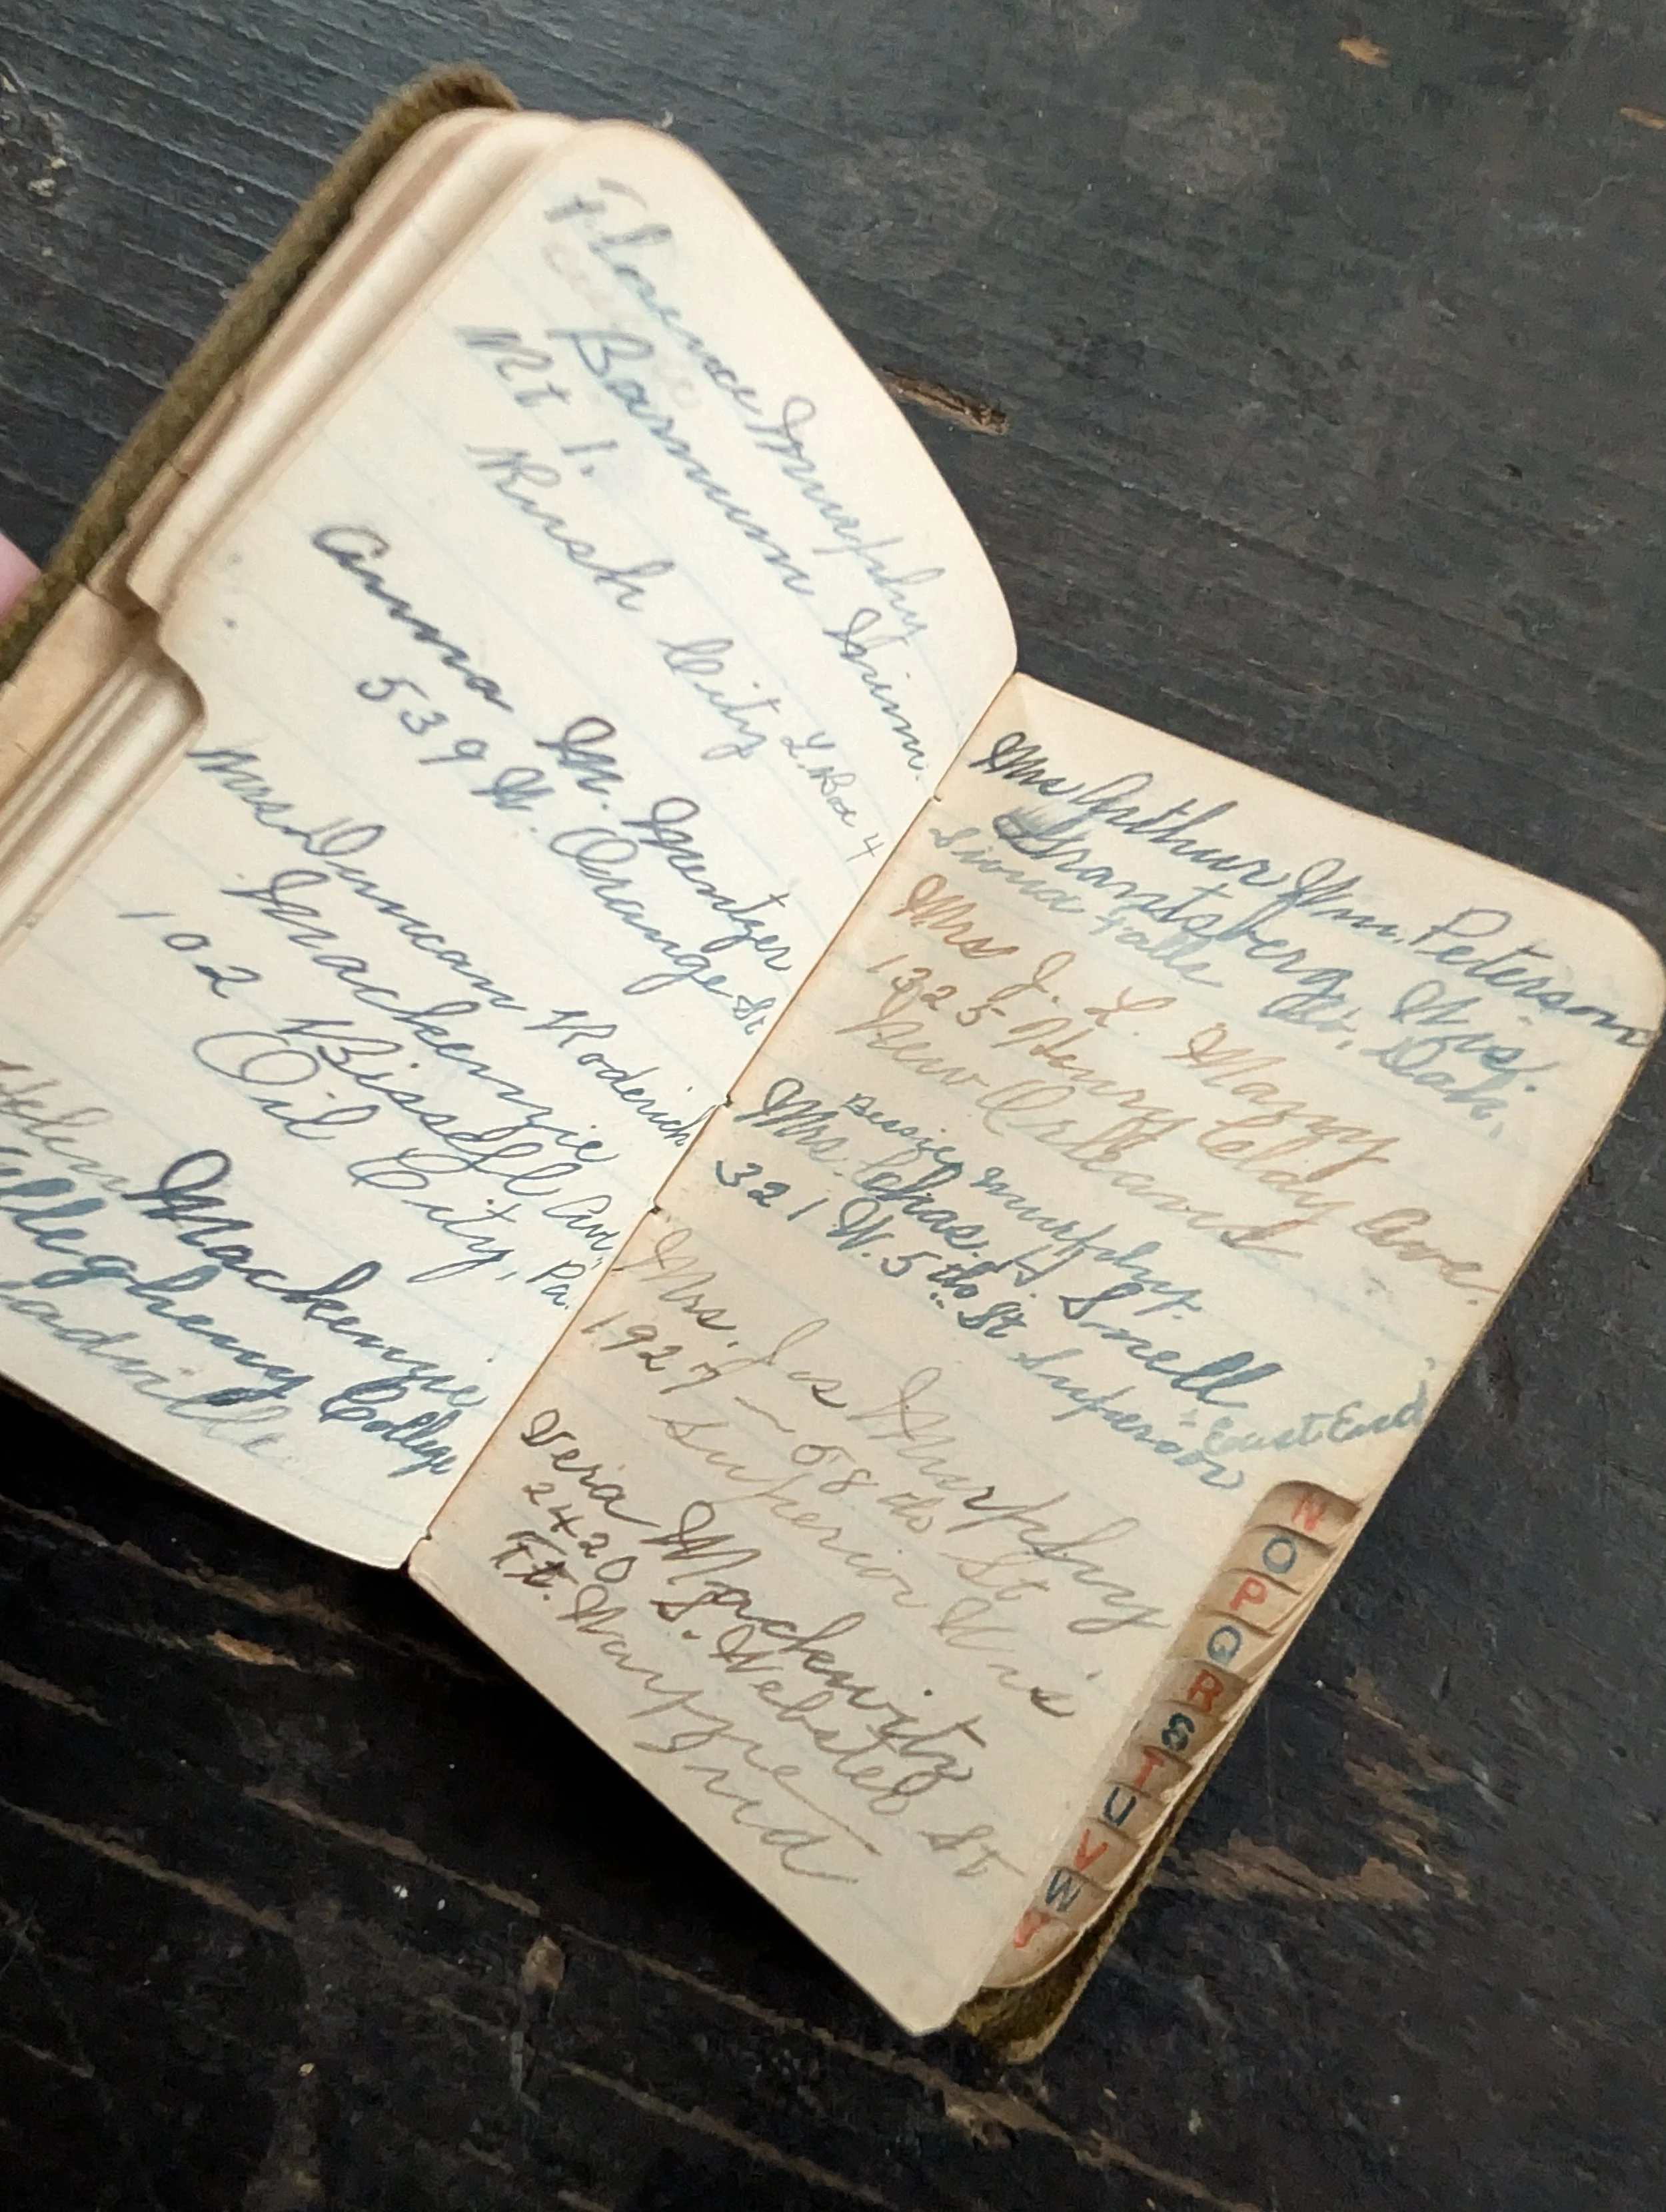 Florence Murphy
Barnum Minn.
Rt 1.
Rush City L. Box 4
Anna M. Mentzer
539 N. Orange St.
Mrs. Duncan Roderick
Mackenzie
102 Bissell Ave.
Oil City, Pa.
Helen Mackenzie
Allegheny College
Meadville
Mrs Arthur Wm. Peterson
Grantsberg, Wis.
Sioux Falls So. Dak.
Mrs J. L. Many
1325 Henry Clay Ave.
New Orleans
Bessie Murphy.
Mrs. Chas. H. Snell
321 W. 5th St Superior East End
Mrs. Jas Murphy
1927 - 58th St
Superior Wis
Vera Mackwitz
2420 S. Webster St
Ft. Wayne
Ind
N
O
P
Q
R
S
T
U
V
W
Y